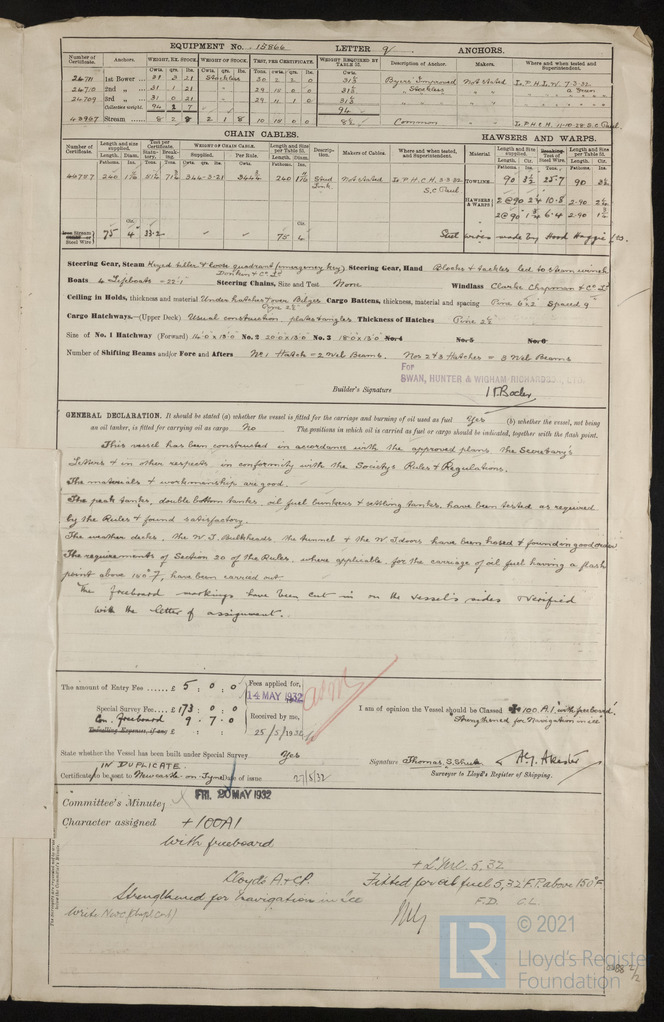 EQUIPMENT No. 15866 LETTER q ANCHORS.
Number of Certificate. Anchors. WEIGHT, EX. STOCK. WEIGHT OF STOCK. TEST, PER CERTIFICATE. WEIGHT REQUIRED BY TABLE 31. Description of Anchor. Makers. Where and when tested and Superintendent.
Cwts. qrs. lbs. Cwts. qrs. lbs. Tons. cwts. qrs. lbs. Cwts.
24711 1st Bower 31 3 21 Stockless 30 2 2 0 31½ Byers Improved Not Stated L.P.H.L.W. 7-3-32
24710 2nd „ 31 1 21 29 15 0 0 31½ Stockless
24709 3rd „ 31 0 21 29 11 1 0 31½
Collective weight. 94 2 7 94
43967 Stream 8 2 8 2 1 8 10 15 0 0 8½ Common L.P.H.C.H. 11-10-28 S.C. Paul
CHAIN CABLES. HAWSERS AND WARPS.
Number of Certificate. Length and size supplied. Test per Certificate. WEIGHT OF CHAIN CABLE. Length and Size per Table 31. Description. Makers of Cables. Where and when tested, and Superintendent. Material. Length and Size supplied. Breaking Test of Steel Wire. Length and Size per Table 31.
Supplied. Per Rule.
240 344-3-21 240 Stud Link Not Stated L.P.H.C.H. 3-3-32 S.C. Paul TOWLINE 90 3½ 25·7 90 3½
HAWSERS & WARPS 2@90 2¼ 10·8 2-90 2¼
2@90 6·4 2-90
Stream or Steel Wire 75 4 33·2 75 4 Steel wires made by Hood Haggie & Co.
Steering Gear, Steam Keyed tiller & loose quadrant (emergency key) Steering Gear, Hand Blocks & tackles led to steam winch
Donkin & Co Ld
Boats 4 Lifeboats = 22'·1 Steering Chains, Size and Test None Windlass Clarke Chapman & Co Ld
Ceiling in Holds, thickness and material Under hatches & over Bilges Pine 2½ Cargo Battens, thickness, material and spacing Pine 6 x 2 Spaced 9"
Cargo Hatchways.—(Upper Deck) Usual construction plates & angles Thickness of Hatches Pine 2½
Size of No. 1 Hatchway (Forward) 14·0 x 13·0 No. 2 20·0 x 13·0 No. 3 18·0 x 13·0 No. 4 No. 5 No. 6
Number of Shifting Beams and/or Fore and Afters No 1 Hatch = 2 Web Beams. Nos 2 & 3 Hatches = 3 Web Beams
For
SWAN, HUNTER & WIGHAM RICHARDSON, LTD.
Builder's Signature
GENERAL DECLARATION. It should be stated (a) whether the vessel is fitted for the carriage and burning of oil used as fuel Yes (b) whether the vessel, not being
an oil tanker, is fitted for carrying oil as cargo No The positions in which oil is carried as fuel or cargo should be indicated, together with the flash point.
This vessel has been constructed in accordance with the approved plans, the Secretary's
Letters & in other respects in conformity with the Society's Rules & Regulations.
The materials & workmanship are good.
The peak tanks, double bottom tanks, oil fuel bunkers & settling tanks, have been tested as required
by the Rules & found satisfactory.
The weather decks, the W.T. Bulkheads, the tunnel & the W.T. doors have been hosed & found in good order
The requirements of Section 20 of the Rules, where applicable, for the carriage of oil fuel having a flash
point above 150° F, have been carried out.
The freeboard markings have been cut in on the vessel's sides & verified
with the letter of assignment.
The amount of Entry Fee £ 5 : 0 : 0
Fees applied for,
14 MAY 1932
Special Survey Fee £173 : 0 : 0
Con. Freeboard 9 . 7 . 0
Travelling Expenses, if any £
Received by me,
25/5/1932
I am of opinion the Vessel should be Classed ✠ 100 A.1 "with freeboard".
"Strengthened for Navigation in ice"
State whether the Vessel has been built under Special Survey Yes
IN DUPLICATE.
Certificate to be sent to Newcastle-on-Tyne Date of issue 27/5/32
Signature Thomas S. Shute
Surveyor to Lloyd's Register of Shipping.
Committee's Minute
FRI. 20 MAY 1932
Character assigned + 100A1
With freeboard
Lloyds A & CP.
Strengthened for navigation in ice
+ LMC. 5,32
Fitted for oil fuel 5,32 F.P. above 150°F.
F.D. CL.
© 2021
LR
Lloyd's Register
Foundation